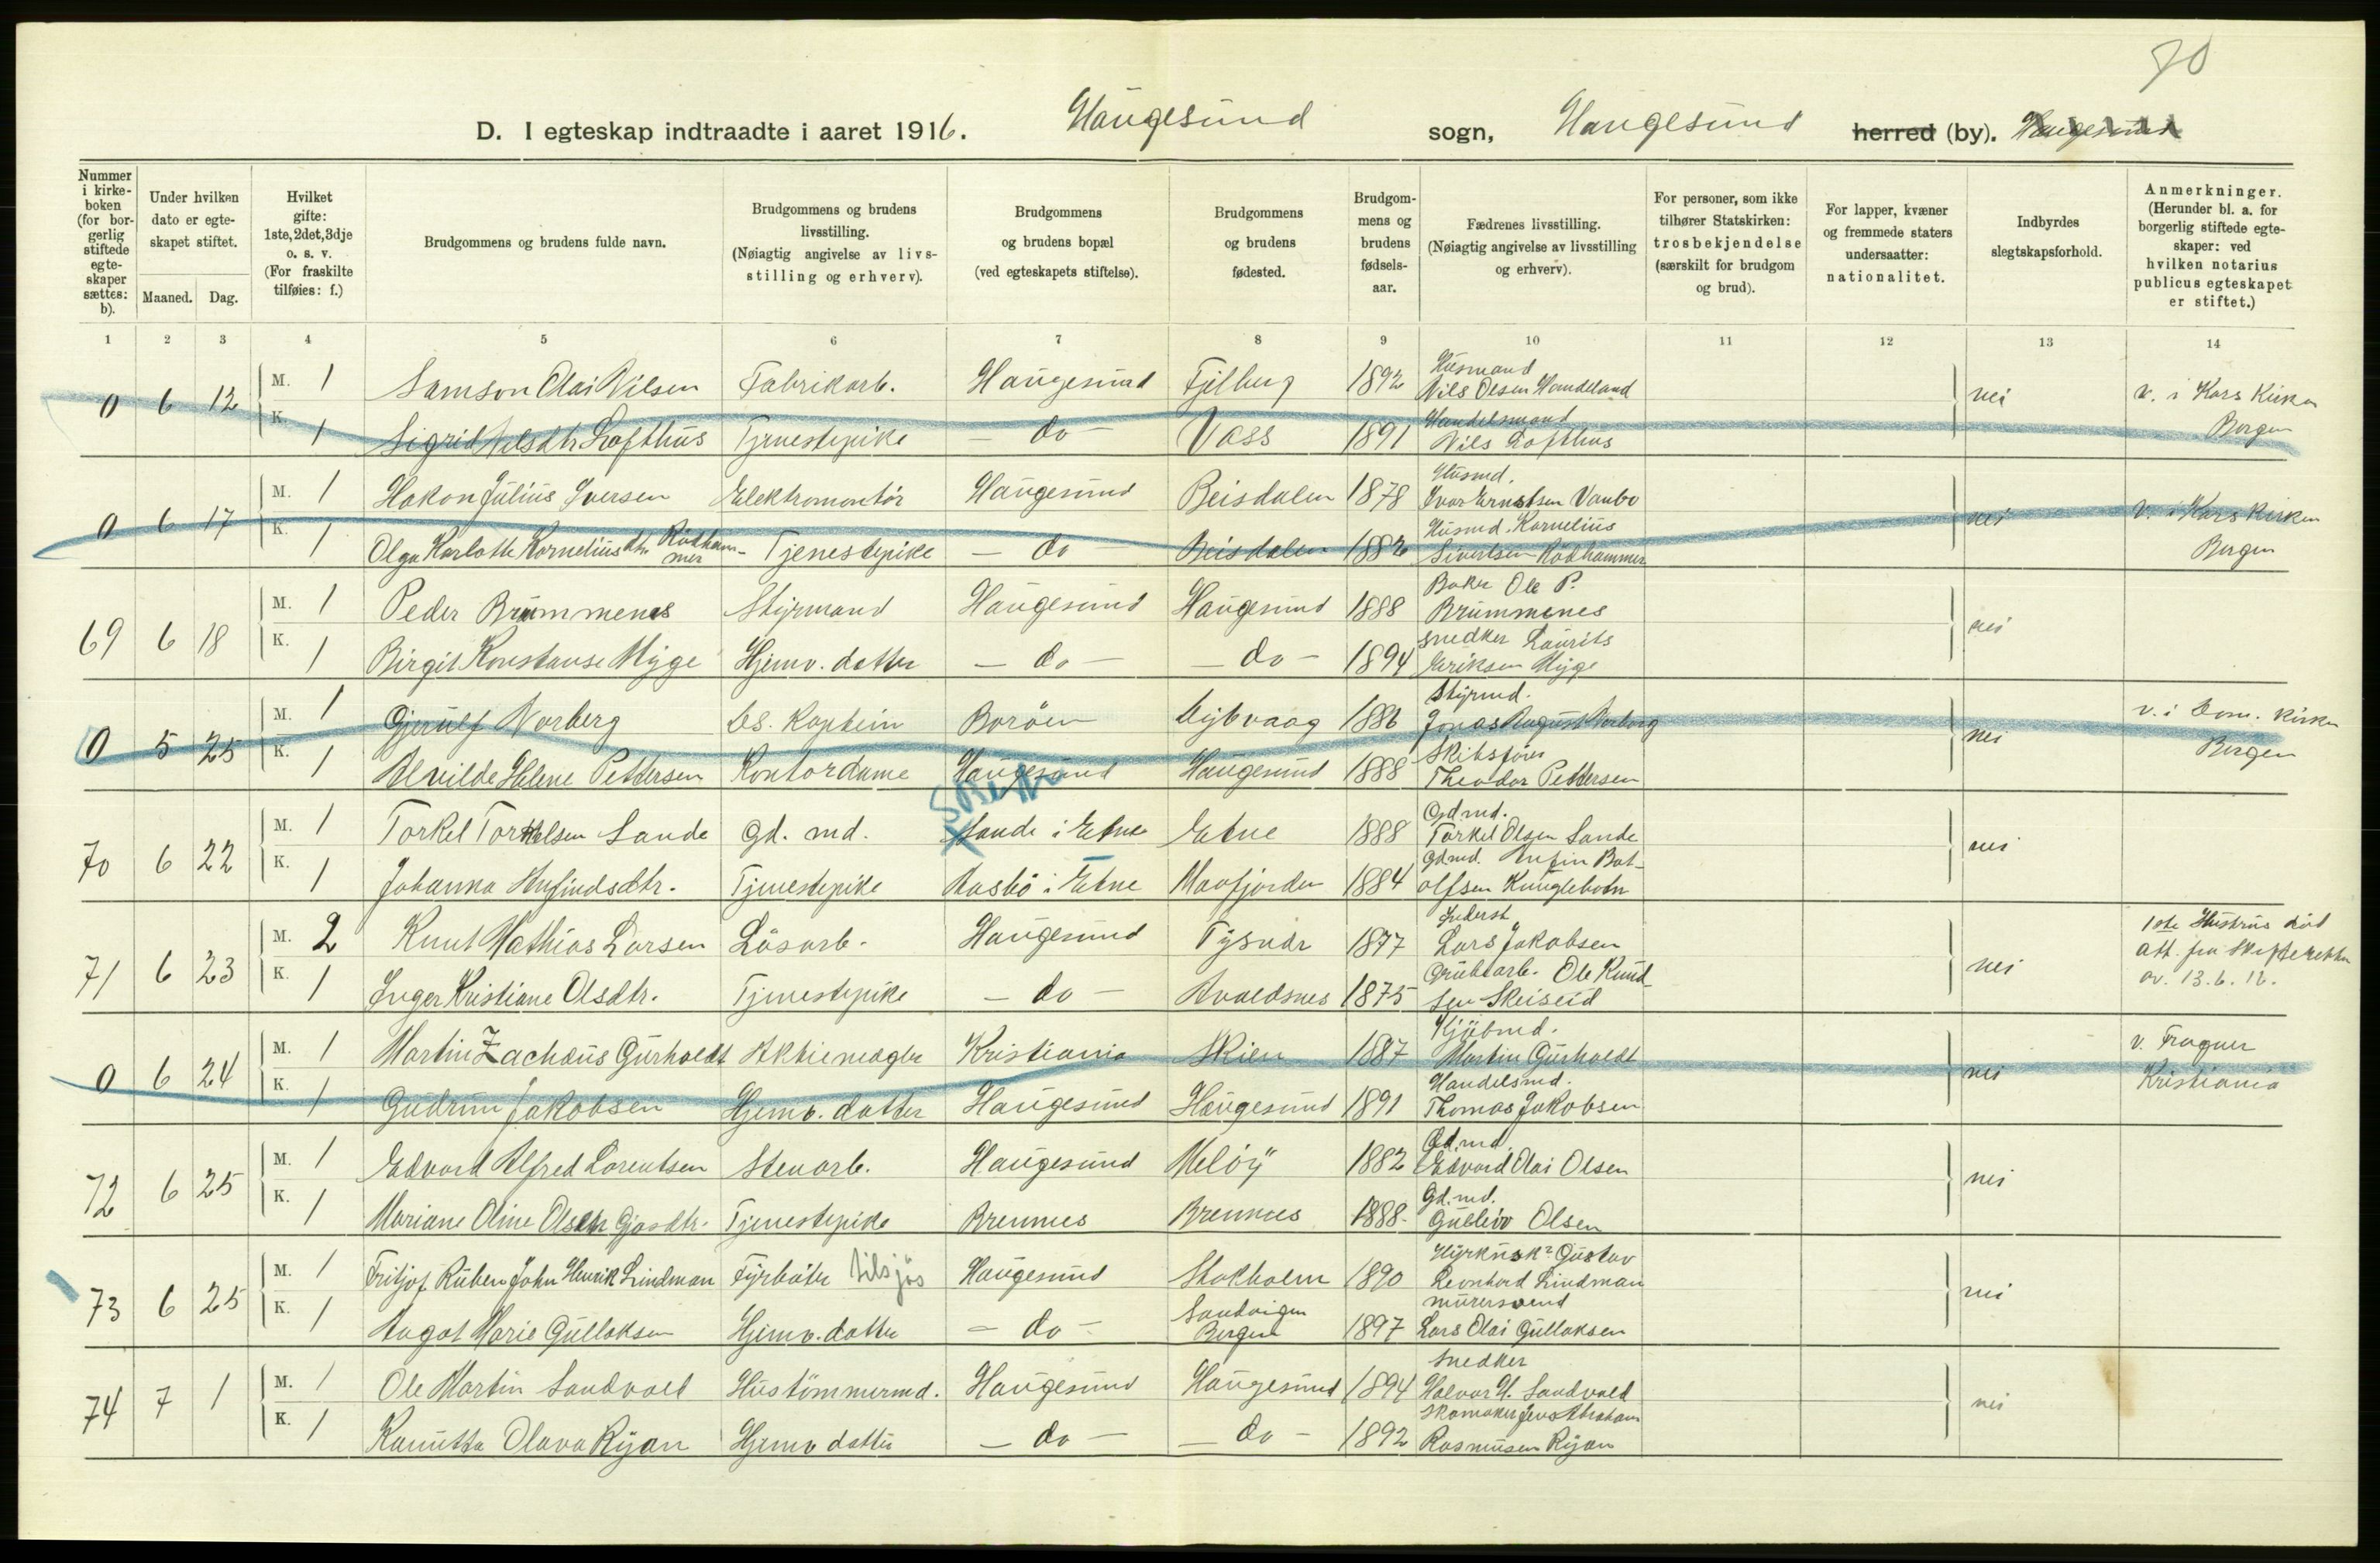 70
D. I egteskap indtraadte i aaret 1916. Haugesund sogn, Haugesund herred (by). Haugesund
Nummer i kirkeboken (for borgerlig stiftede egteskaper sættes: b).
Under hvilken dato er egteskapet stiftet.
Maaned. Dag.
Hvilket gifte: 1ste, 2det, 3dje o. s. v. (For fraskilte tilføies: f.)
Brudgommens og brudens fulde navn.
Brudgommens og brudens livsstilling. (Nøiagtig angivelse av livsstilling og erhverv).
Brudgommens og brudens bopæl (ved egteskapets stiftelse).
Brudgommens og brudens fødested.
Brudgommens og brudens fødselsaar.
Fædrenes livsstilling. (Nøiagtig angivelse av livsstilling og erhverv).
For personer, som ikke tilhører Statskirken: trosbekjendelse (særskilt for brudgom og brud).
For lapper, kvæner og fremmede staters undersaatter: nationalitet.
Indbyrdes slegtskapsforhold.
Anmerkninger. (Herunder bl. a. for borgerlig stiftede egteskaper: ved hvilken notarius publicus egteskapet er stiftet.)
1 2 3 4 5 6 7 8 9 10 11 12 13 14
0 6 12 M. 1 Samson Olai Nilsen Fabrikarb. Haugesund Fjelberg 1892 Husmand Nils Olsen Handeland nei v. i Kors Kirken
K. 1 Sigrid Nilsdtr Lofthus Tjenestepike - do - Voss 1891 Handelsmand Nils Lofthus Bergen
0 6 17 M. 1 Hakon Julius Iversen Elektromontör Haugesund Beisdalen 1878 Husmd. Ivar Ernstsen Vanbo nei v. i Kors Kirken
K. 1 Olga Karlotte Korneliusdtr Rödhammer Tjenestepike - do - Beisdalen 1882 Husmd. Kornelius Sivertsen Rödhammer Bergen
69 6 18 M. 1 Peder Brummenes Styrmand Haugesund Haugesund 1888 Baker Ole P. Brummenes nei
K. 1 Birgit Konstanse Myge Hjemv. datter - do - - do - 1894 Snedker Laurits Eriksen Myge
0 5 25 M. 1 Gjerulf Norberg Ds. Kaptein Borøen Dybvaag 1886 Styrmd. Jonas August Norberg nei v. i Dom. Kirken
K. 1 Alvilde Helene Pettersen Kontordame Haugesund Haugesund 1888 Skibsförer Theodor Pettersen Bergen
70 6 22 M. 1 Torkel Torkelsen Sande Gd. md. Sande i Etne Etne 1888 Gdmd. Torkel Olsen Sande nei
K. 1 Johanna Anfindsdtr. Tjenestepike Aasbö i Etne Maafjorden 1884 Gdmd. Anfin Botolfsen Kringlebotn
71 6 23 M. 2 Knut Mathias Larsen Lösarb. Haugesund Tysvær 1877 Inderst Lars Jakobsen nei 1ste Hustrus död
K. 1 Inger Kristiane Olsdtr. Tjenestepike - do - Avaldsnes 1875 Grubearb. Ole Knudsen Skeiseid att. fra Skifteretten av. 13.6.16.
0 6 24 M. 1 Martin Zachæus Gurholdt Aktiemægler Kristiania Skien 1887 Kjöbmd. Martin Gurholdt nei v. Frogner
K. 1 Gudrun Jakobsen Hjemv. datter Haugesund Haugesund 1891 Handelsmd. Thomas Jakobsen Kristiania
72 6 25 M. 1 Edvard Alfred Lorentsen Stenarb. Haugesund Melöy 1882 Gd.md. Edvard Olai Olsen nei
K. 1 Mariane Oline Olsen Gjosdtr. Tjenestepike Bremnes Bremnes 1888 Gd.md. Gulleiv Olsen
73 6 25 M. 1 Fritjof Ruben John Henrik Lindman Fyrböter tilsjös Haugesund Stokholm 1890 Hyrkusk Gustav Leonhard Lindman nei
K. 1 Aagot Marie Gullaksen Hjemv. datter - do - Sandvigen Bergen 1897 Murersvend Lars Olai Gullaksen
74 7 1 M. 1 Ole Martin Sandvold Hustömmermd. Haugesund Haugesund 1894 Snedker Halvor H. Sandvold nei
K. 1 Kanutta Olava Ryan Hjemv datter - do - - do - 1892 Skomaker Jens Abraham Rasmussen Ryan